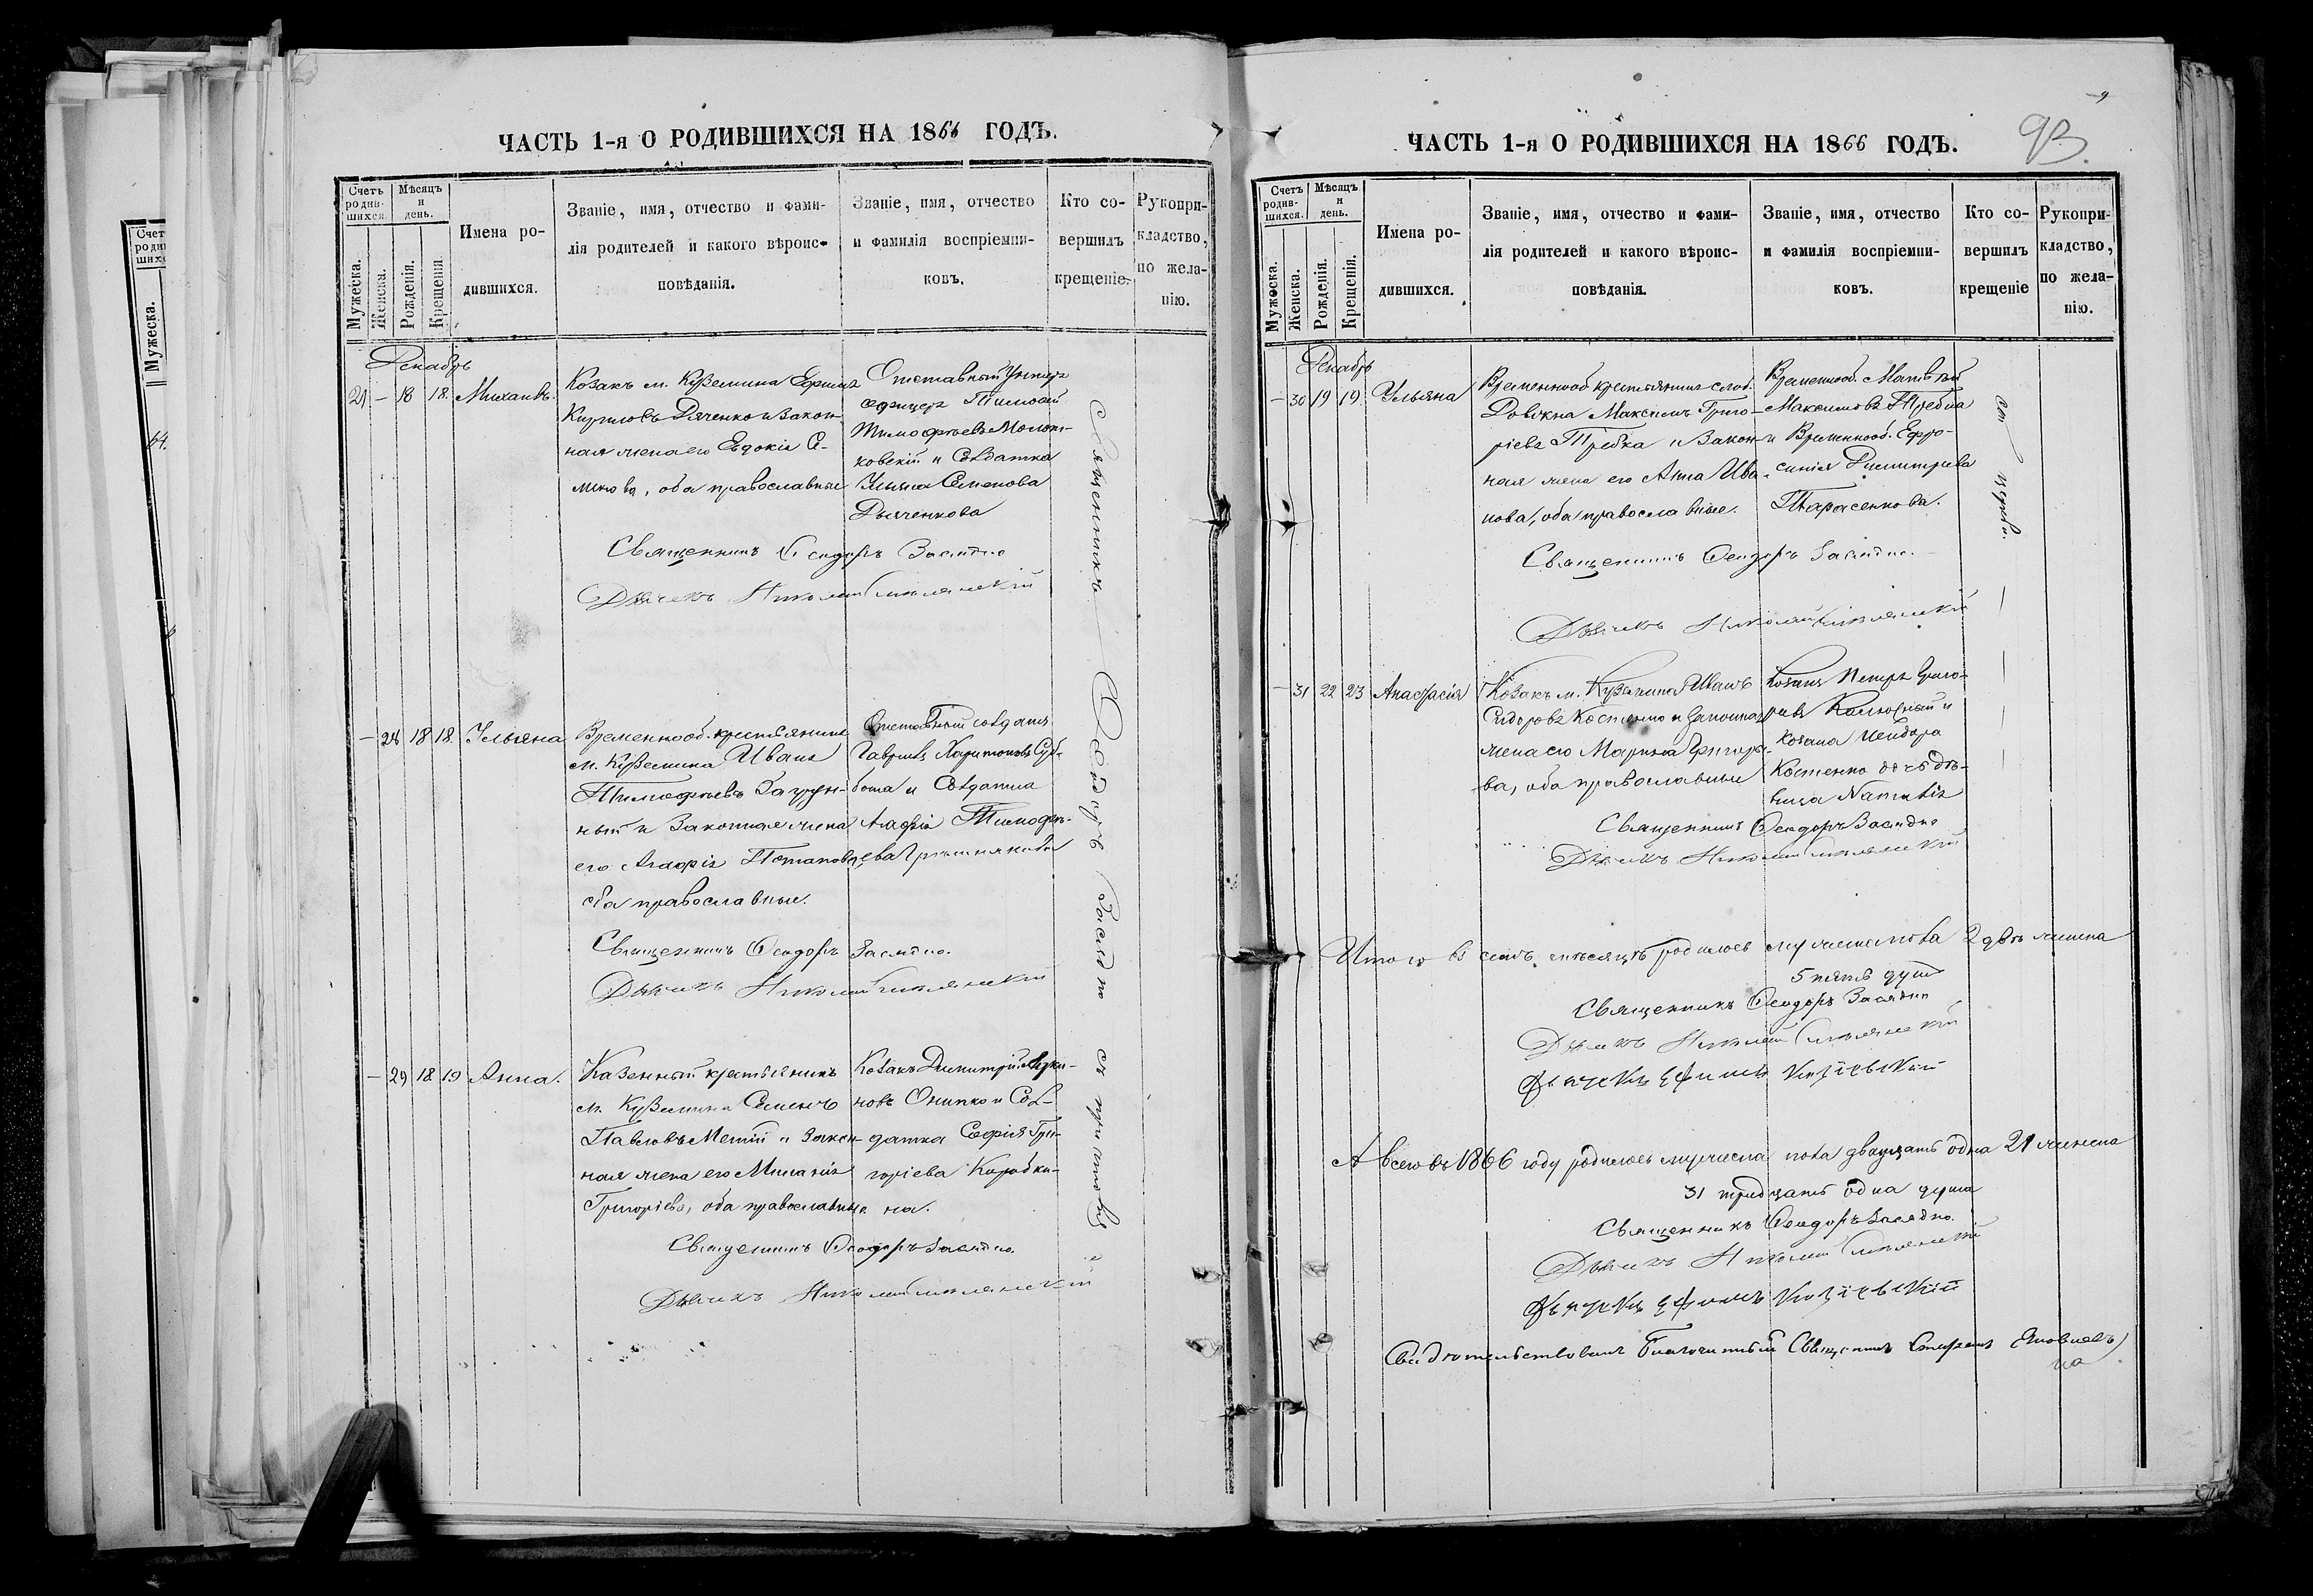 ЧАСТЬ 1-я О РОДИВШИХСЯ НА 1866 ГОДЪ.
Счетъ родив-шихся.
Мѣсяцъ и день.
Мужеска.
Женска.
Рожденія.
Крещенія.
Имена ро-
дившихся.
Званіе, имя, отчество и фами-
лія родителей и какого вѣроис-
повѣданія.
Званіе, имя, отчество
и фамилія воспріемни-
ковъ.
Кто со-
вершилъ
крещеніе.
Рукопри-
кладство,
по жела-
нію.
Декабрь
21 – 18 18. Михаилъ.
Козакъ м. Куземина Ефимъ
Кириловъ Дяченко и закон-
ная жена его Евдокія Се-
менова, оба православные
Отставный Унтеръ
офицеръ Тимофей
Тимофѣевъ Молот-
ковскій и Солдатка
Ульяна Семенова
Дьяченкова
Священникъ Ѳеодоръ Засядко
Дьячекъ Николай
– 28 18 18. Ульяна
Временнооб. крестьянинъ
м. Куземина Иванъ
Тимофѣевъ
ный и Законная жена
его Агафія Потапова,
оба православные.
Отставный солдатъ
Гавріилъ Харитоновъ Суб-
бота и Солдатка
Агафія Тимофѣ-
ева
Священникъ Ѳеодоръ Засядко.
Дьячекъ Николай
– 29 18 19 Анна.
Казенный крестьянинъ
м. Куземина Семенъ
Павловъ и закон-
ная жена его Миланія
Григоріева, оба православные
Козакъ Димитрій
новъ Онипко и Сол-
датка Софія Гри-
горіева Коробки-
на.
Священникъ Ѳеодоръ Засядко.
Дьячекъ Николай
Священникъ Ѳеодоръ Засядко съ причтомъ
ЧАСТЬ 1-я О РОДИВШИХСЯ НА 1866 ГОДЪ.
93.
Счетъ родив-шихся.
Мѣсяцъ и день.
Мужеска.
Женска.
Рожденія.
Крещенія.
Имена ро-
дившихся.
Званіе, имя, отчество и фами-
лія родителей и какого вѣроис-
повѣданія.
Званіе, имя, отчество
и фамилія воспріемни-
ковъ.
Кто со-
вершилъ
крещеніе
Рукопри-
кладство,
по жела-
нію.
Декабрь
– 30 19 19. Ульяна
Временнооб. крестьянинъ слоб.
Максимъ Григо-
ріевъ и Закон-
ная жена его Анна Ива-
нова, оба православные.
Временнооб. Матвѣй
Максимовъ
и Временнооб. Ефро-
синія Димитріева
Тарасенкова.
Священникъ Ѳеодоръ Засядко.
Дьячекъ Николай
– 31 22 23 Анастасія
Козакъ м. Куземина Иванъ
Сидоровъ Костенко и законная
жена его Марина Григорье-
ва, оба православные
Козакъ Петръ Григо-
рьевъ и
Козака
Костенко дочь дѣ-
вица Наталія
Священникъ Ѳеодоръ Засядко
Дьячекъ Николай
Итого въ семъ мѣсяцѣ родилось мужеска пола 2 двѣ женска
5 пять душъ
Священникъ Ѳеодоръ Засядко
Дьячекъ Николай
Дьячекъ Ефимъ
А всего въ 1866 году родилось мужеска пола двадцать одна 21 женска
31 тридцать одна душа
Священникъ Ѳеодоръ Засядко.
Дьячекъ Николай
Дьячекъ Ефимъ
Свидѣтельствовалъ Благочинный Священникъ Стефанъ